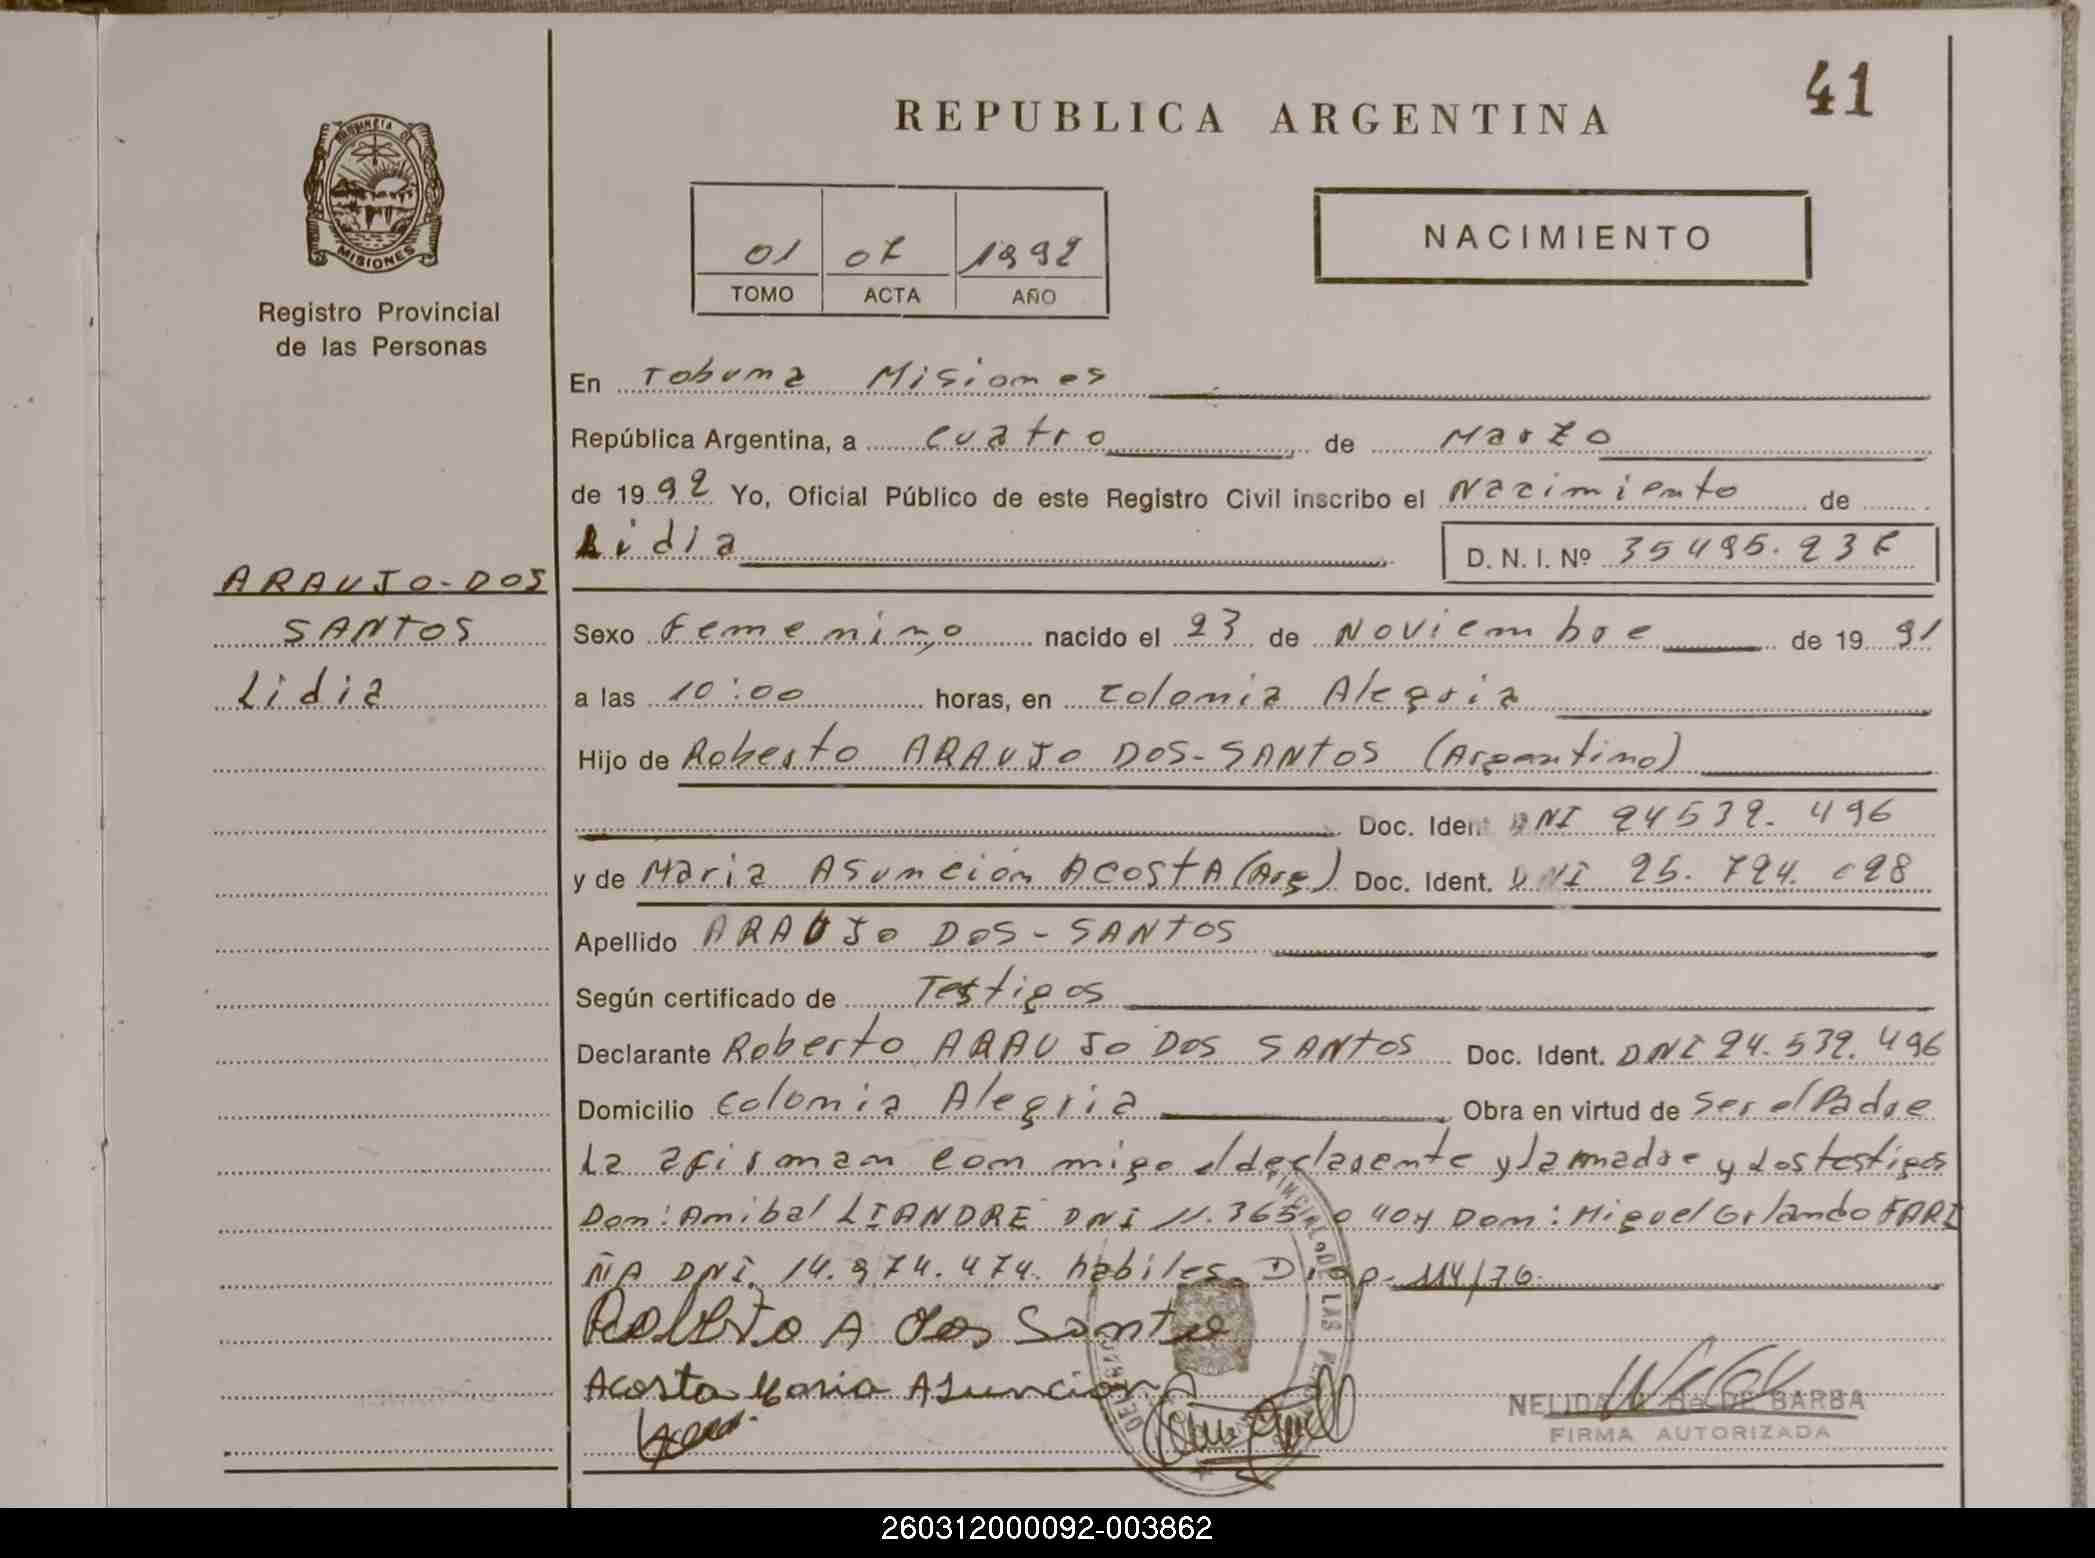 41
REPUBLICA ARGENTINA
PROVINCIA DE
MISIONES
Registro Provincial
de las Personas
01 07 1992
TOMO ACTA AÑO
NACIMIENTO
En Tobuna Misiones
República Argentina, a cuatro de Marzo
de 1992 Yo, Oficial Público de este Registro Civil inscribo el Nacimiento de
Lidia D. N. I. Nº 35495.237
ARAUJO-DOS
SANTOS
Lidia
Sexo Femenino nacido el 23 de Noviembre de 1991
a las 10:00 horas, en Colonia Alegria
Hijo de Roberto ARAUJO DOS-SANTOS (Argentino)
Doc. Ident DNI 24532.496
y de Maria Asunción ACOSTA (Arg) Doc. Ident. DNI 25.724.098
Apellido ARAUJO DOS-SANTOS
Según certificado de Testigos
Declarante Roberto ARAUJO DOS SANTOS Doc. Ident. DNI 24.532.496
Domicilio Colonia Alegria Obra en virtud de Ser el Padre
La afirman con migo el declarente y la madre y Los testigos
Don: Anibal LIANDRE DNI 11.365.040 y Don: Miguel Orlando FARI
ÑA DNI. 14.974.474. habiles. Disp. 114/76.
Roberto A dos Santos
Acosta Maria Asuncion
NELIDA de DE BARBA
FIRMA AUTORIZADA
260312000092-003862